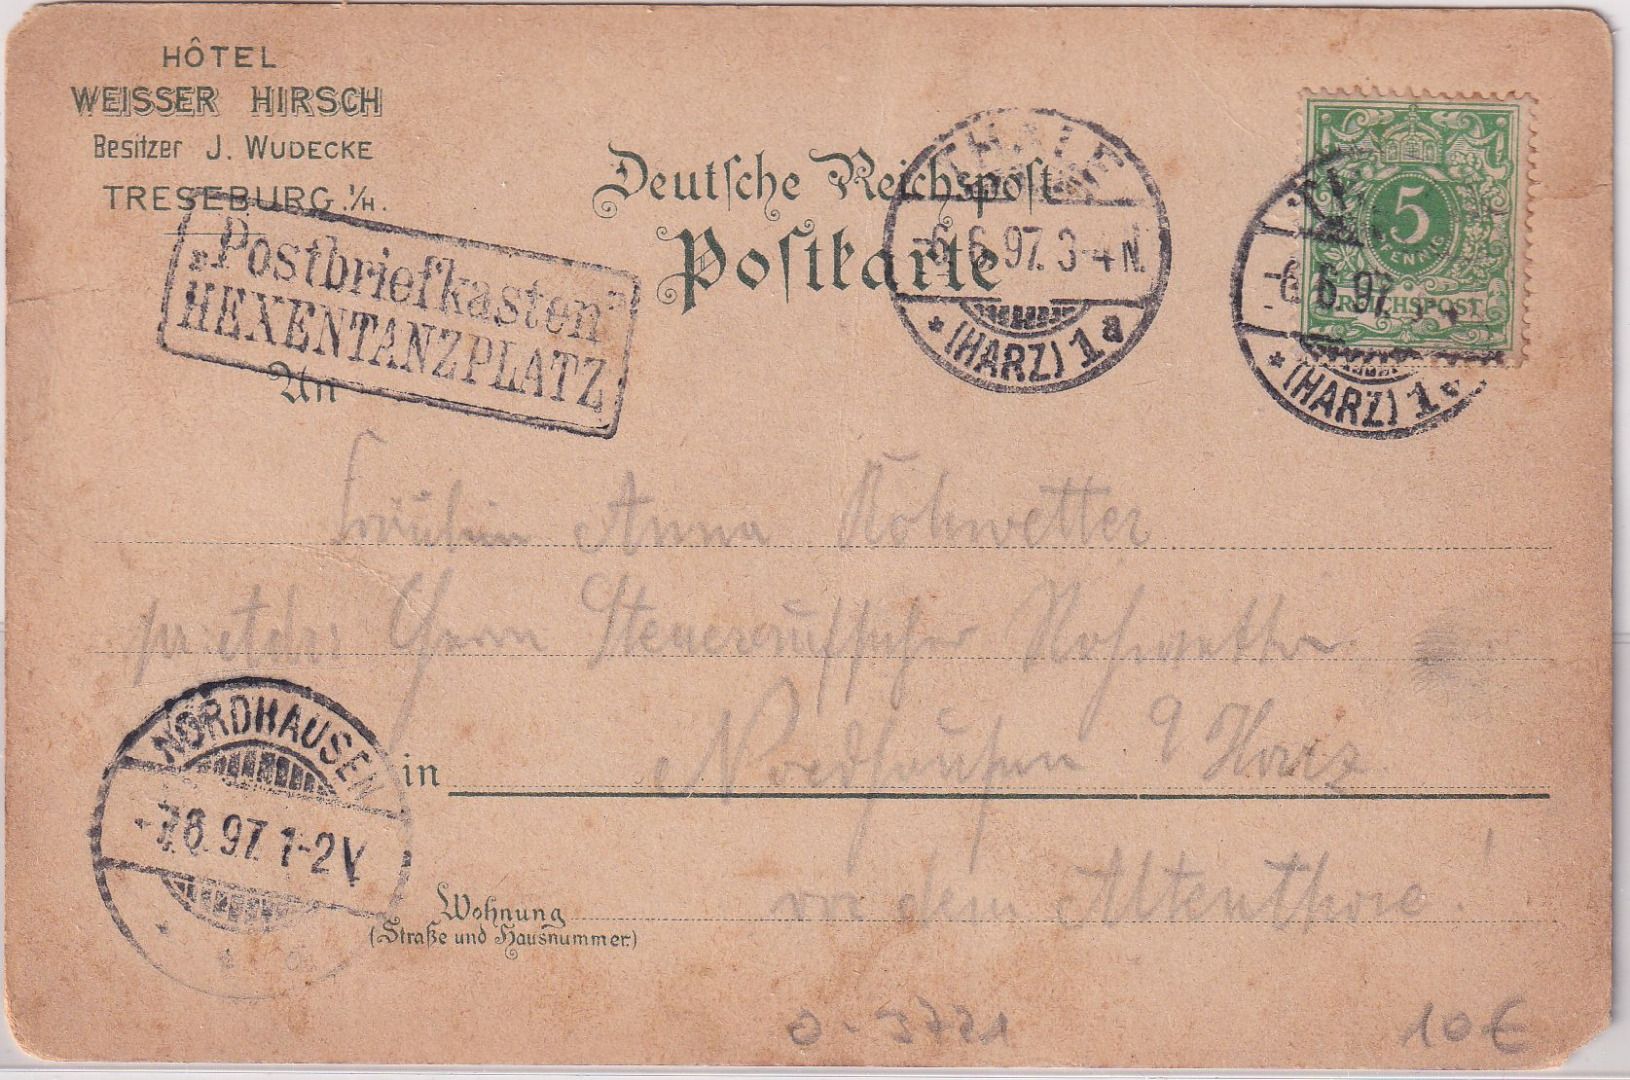 HÔTEL
WEISSER HIRSCH
Besitzer J. WUDECKE
TRESEBURG. i/H.
„Postbriefkasten“
HEXENTANZPLATZ
Deutsche Reichspost
Postkarte
THALE
-6.6.97. 3-4 N.
* (HARZ) 1a
5
PFENNIG
REICHSPOST
-6.6.97.
* (HARZ) 1a
An
Fräulein Anna Rohwetter
Herrn Steueraufseher Rohwetter
in Nordhausen a Harz
NORDHAUSEN
-7.6.97. 1-2 V
vor dem Altenthore!
Wohnung
(Straße und Hausnummer)
0-3721
10€